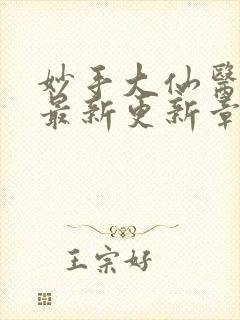 妙手大仙醫
最新更新章
王宗好